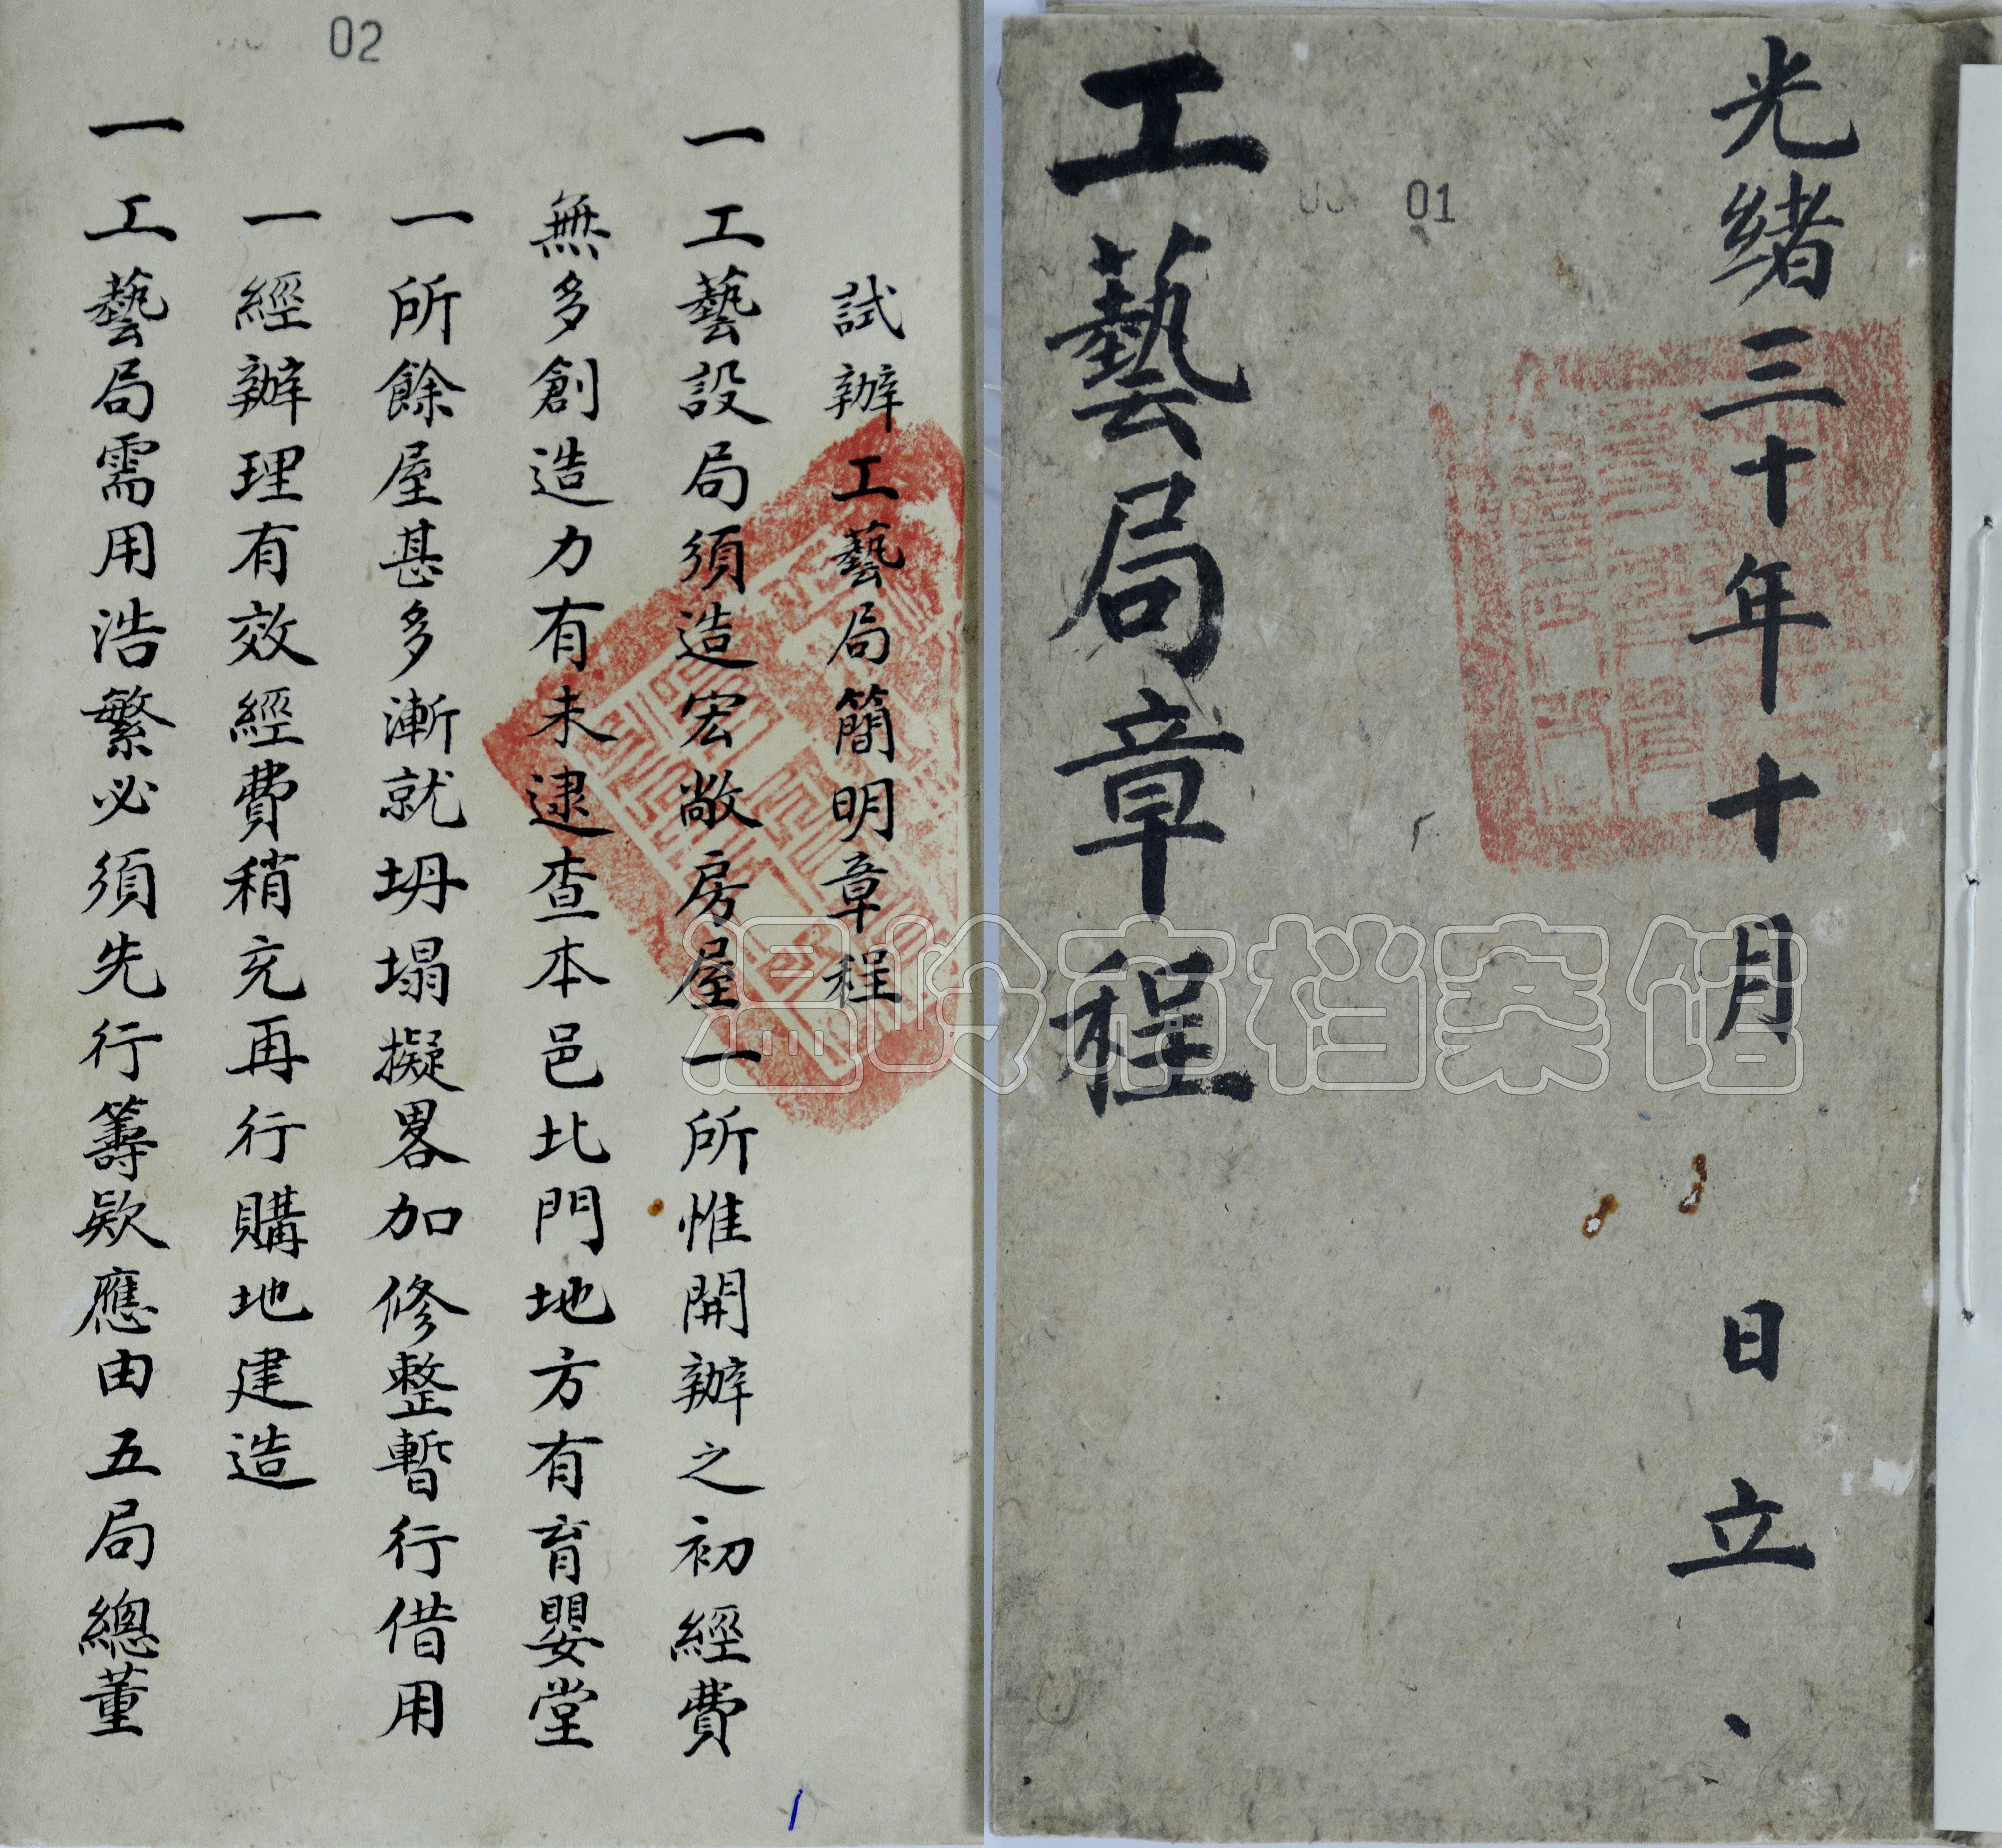 光緒三十年十月 日立、
01
工藝局章程
02
試辦工藝局簡明章程
一工藝設局須造宏敞房屋一所惟開辦之初經費
無多創造力有未逮查本邑北門地方有育嬰堂
一所餘屋甚多漸就坍塌擬畧加修整暫行借用
一經辦理有效經費稍充再行購地建造
一工藝局需用浩繁必須先行籌欵應由五局總董
温岭市档案馆